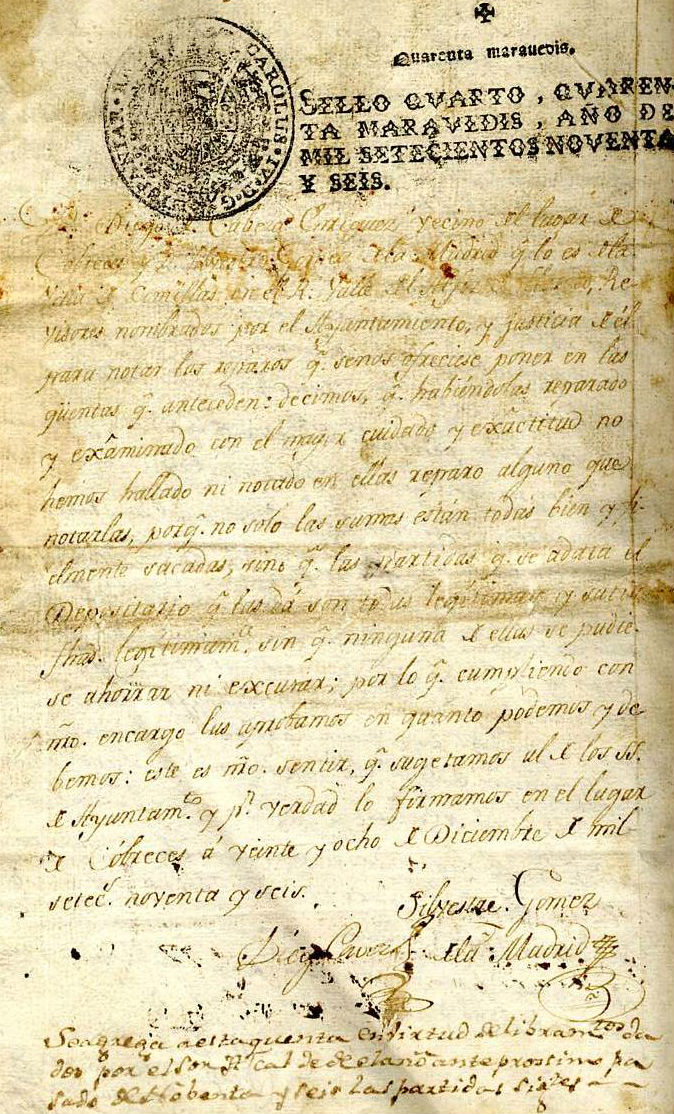 Quarenta maravedis.
SELLO QVARTO, QVAREN-
TA MARAVEDIS, AÑO DE
MIL SETECIENTOS NOVENTA
Y SEIS.
CAROLUS · IV · D · G · HISPANIAR · R
Diego Cabeza Enriquez vecino del lugar de
Cobreces y Gomez de la Madrid q.e lo es de la
Villa de Comillas, en el R. Valle de Alfoz de Lloredo, Re-
visores nombrados por el Ayuntamiento, y justicia de él
para notar los reparos q.e senos ofreciese poner en las
qüentas q.e anteceden: decimos, q.e habiéndolas reparado
y exâminado con el mayor cuidado y exâctitud no
hemos hallado ni notado en ellas reparo alguno que
notarlas, porq.e no solo las sumas están todas bien y fi-
elmente sacadas, sino q.e las partidas q.e se adata el
Depositario q.e las dá son todas legítimas y satis
fhas. legítimam.te sin q.e ninguna de ellas se pudie-
se ahorrar ni excusar; por lo q.e cumpliendo con
nro. encargo las aprobamos en quanto podemos y de
bemos: este es nro. sentir, q.e sugetamos al de los SS.
de Ayuntam.to y p.r verdad lo firmamos en el lugar
de Cóbreces á veinte y ocho de Diciembre de mil
setec.s noventa y seis.
Silvestre Gomez
de la Madrid
Diego
Seagrega aesta quenta en virtud de libram.tos da
dos por el Sor. Alcalde de el año ante prosimo pa
sado de Nobenta y seis las partidas sig.tes